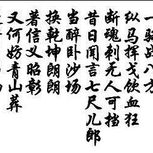 一骑战八方
纵马挥戈饮血狂
断魂刹无人可挡
昔日闻言七尺儿郎
当醉卧沙场
换乾坤朗朗
著信义昭彰
又何妨青山葬